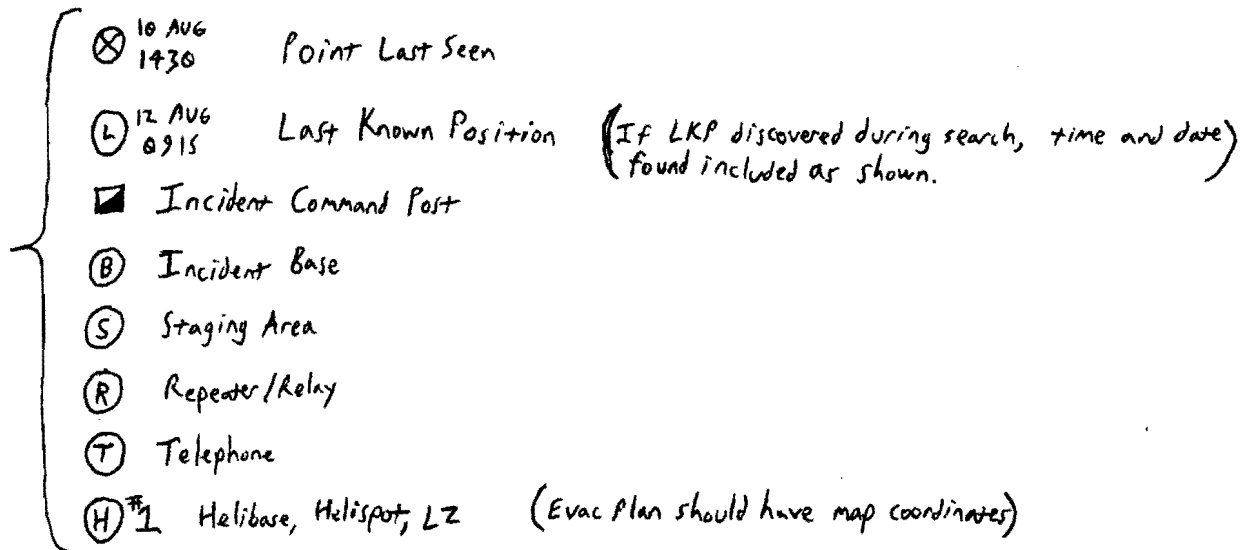 10 AUG
1430 Point Last Seen
L 12 AUG
0915 Last Known Position (If LKP discovered during search, time and date
found included as shown.)
Incident Command Post
B Incident Base
S Staging Area
R Repeater/Relay
T Telephone
H #1 Helibase, Helispot, LZ (Evac Plan should have map coordinates)